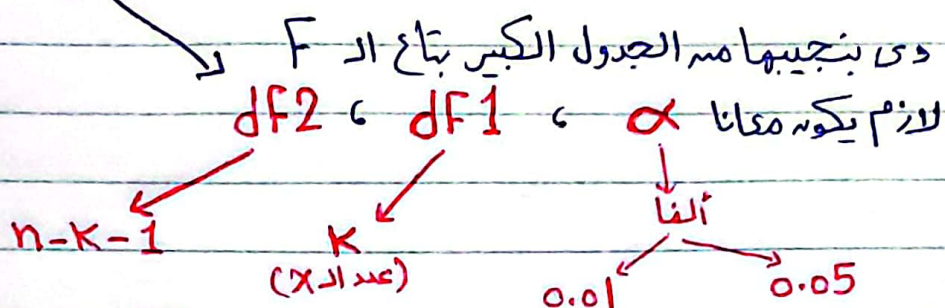 دى بنجيبها من الجدول الكبير بتاع الـ F
لازم يكون معانا α ، dF1 ، dF2
ألفا K n-K-1
(عدد الـ x)
0.05 0.01